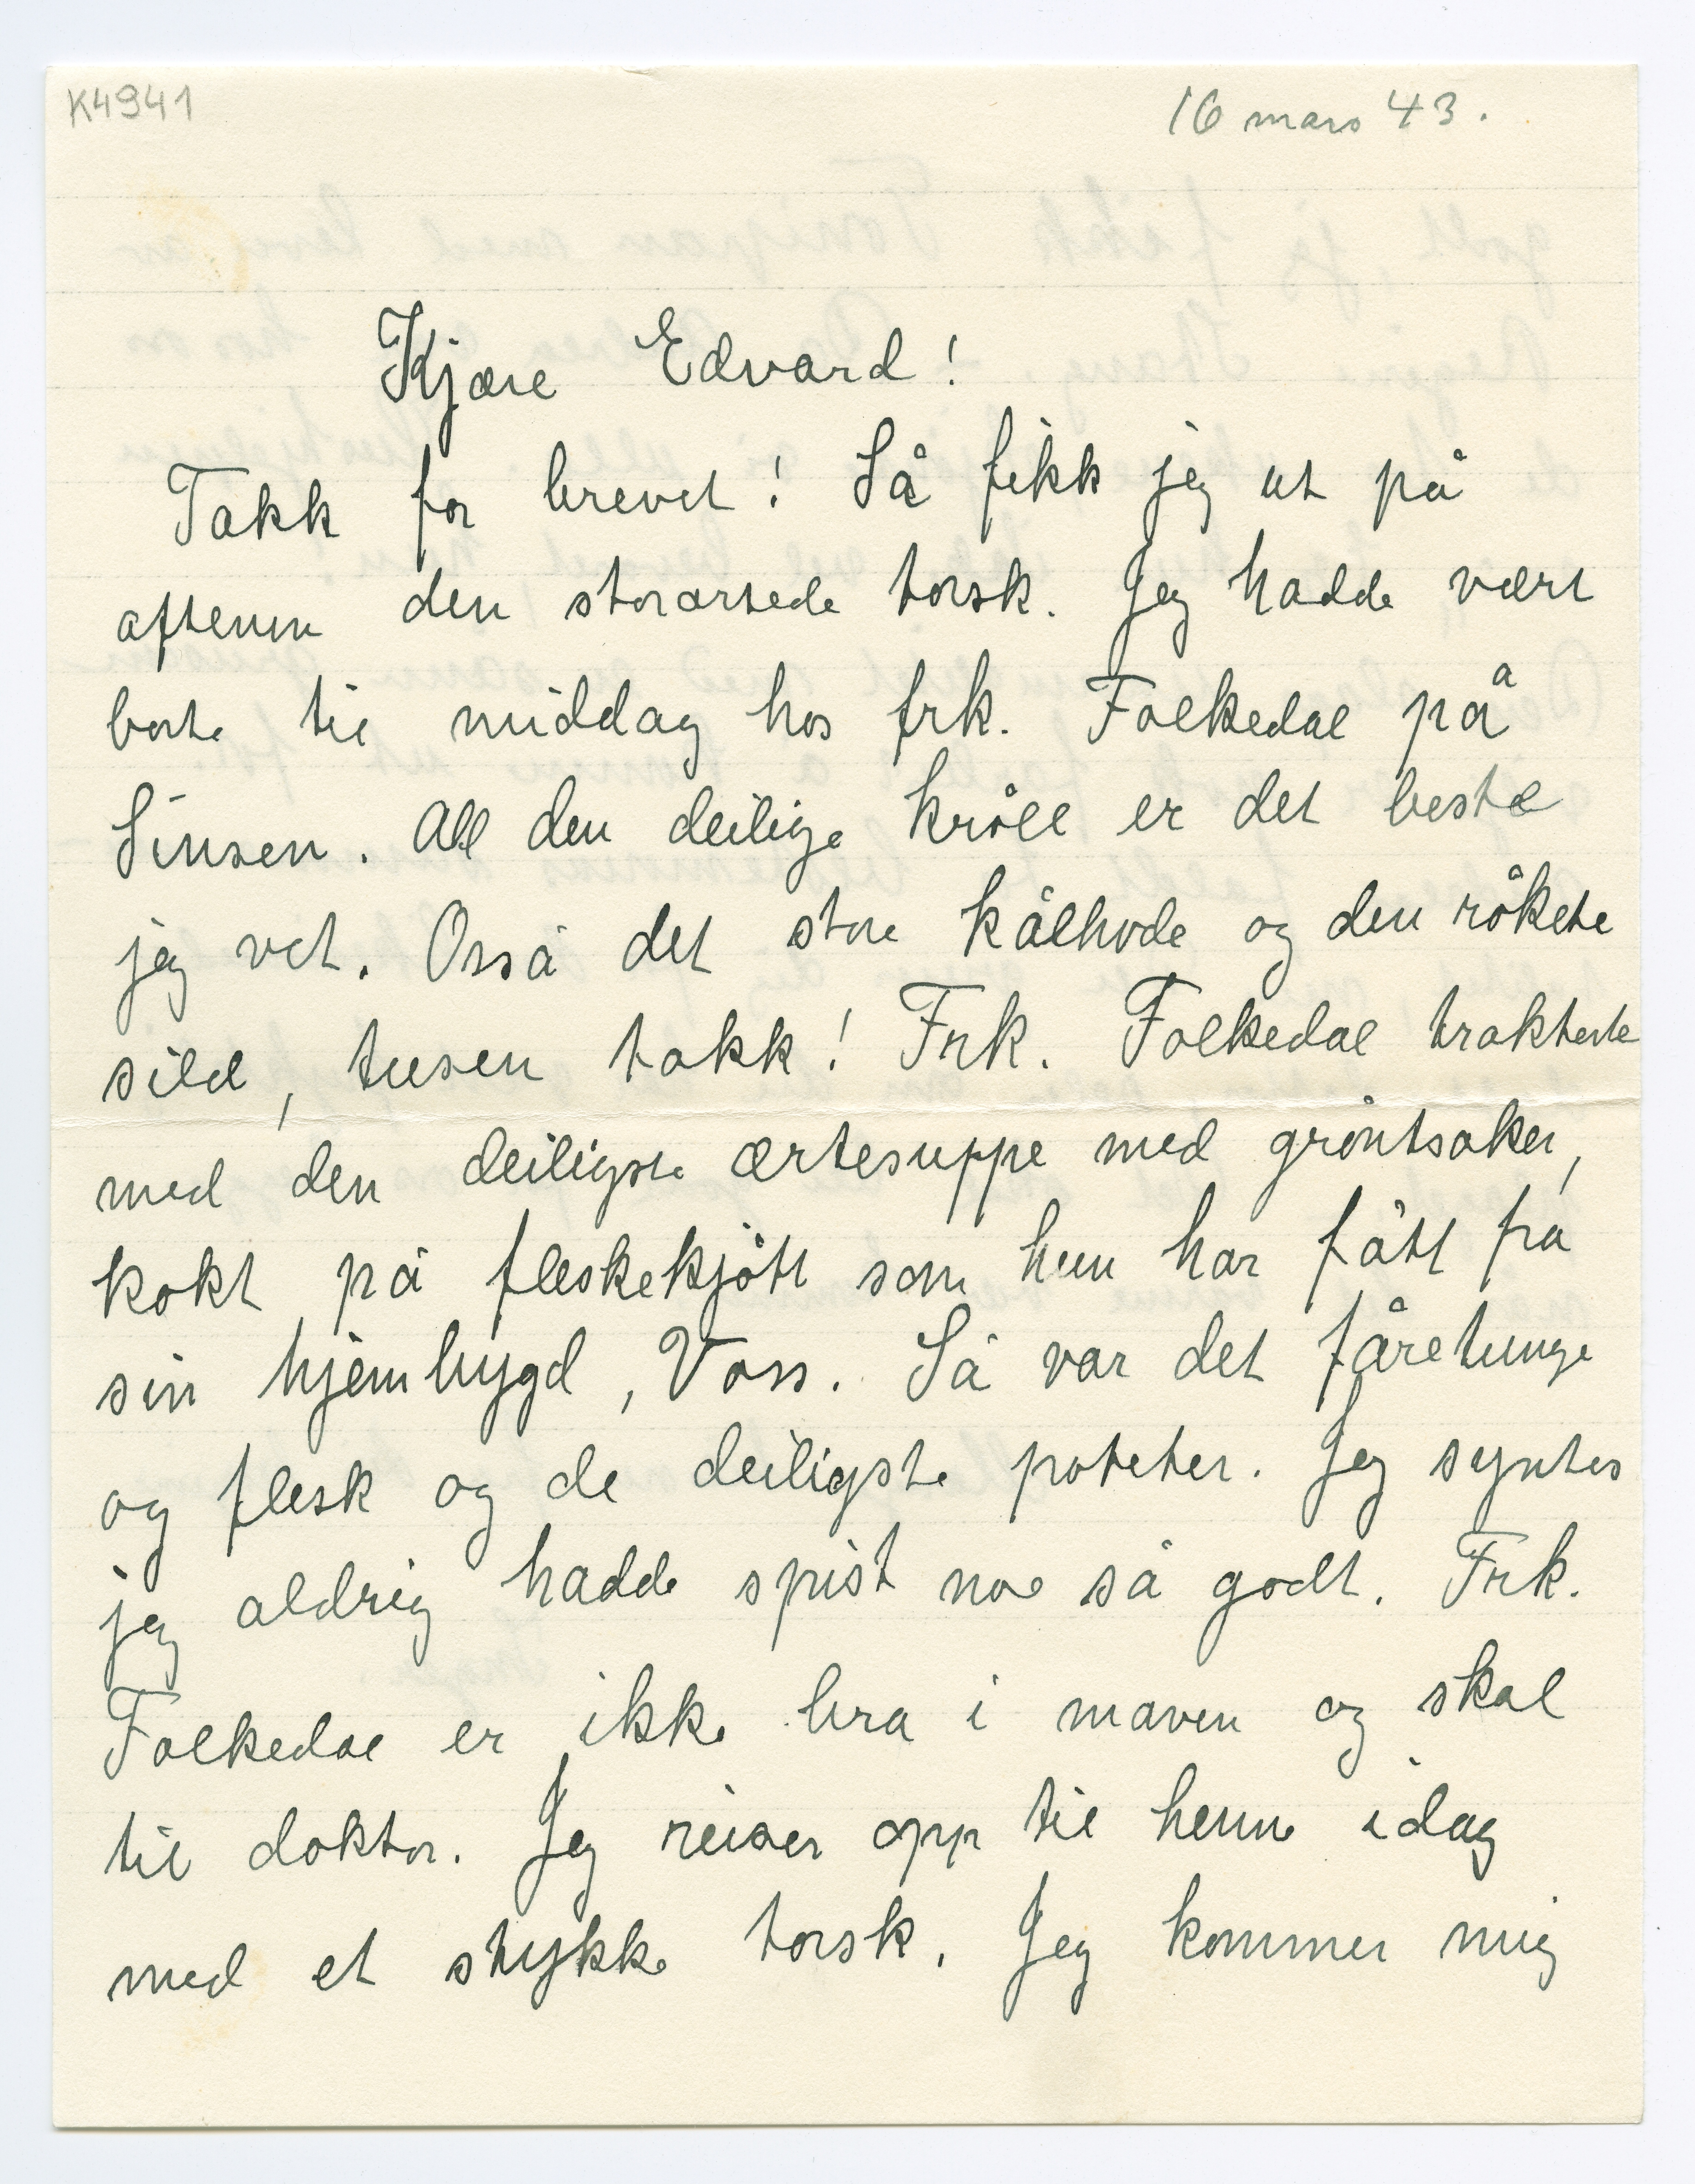 K4941
16 mars 43.
Kjære Edvard!
Takk for brevet! Så fikk jeg ut på
aftenen den storartede torsk. Jeg hadde vært
borte til middag hos frk. Folkedal på
Sinsen. All den deilige kråll er det beste
jeg vet. Osså det store kålhode og den rökete
sild, tusen takk! Frk. Folkedal trakterte
med den deiligste ærtesuppe med gröntsaker,
kokt på fleskekjött som hun har fått fra
sin hjembygd, Voss. Så var det fåretunge
og flesk og de deiligste poteter. Jeg syntes
jeg aldrig hadde spist noe så godt. Frk.
Folkedal er ikke bra i maven og skal
til doktor. Jeg reiser opp til henne idag
med et stykke torsk. Jeg kommer mig